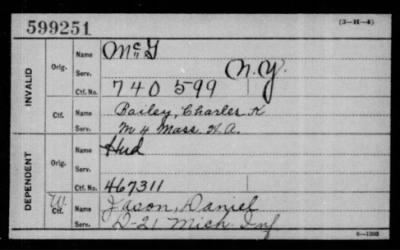 599251 (3-H-4)
INVALID
Orig. Name McG
Serv. N.Y.
Ctf. No. 740 599
Ctf. Name Bailey, Charles K
Serv. M 4 Mass. H.A.
DEPENDENT
Orig. Name Hud
Serv.
Ctf. No. 467311
W. Ctf. Name Jason, Daniel
Serv. D-21 Mich Inf